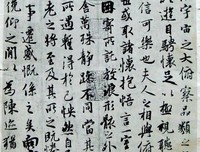 宇宙之大俯察品類之
以遊目騁懷足以極視
信可樂也夫人之相與俯
或取諸懷抱悟言一室
因寄所託放浪形骸之外
舍萬殊靜躁不同當其
所遇蹔得於己怏然自
老之將至及其所之
事遷感慨係之矣向
俛仰之間以為陳迹猶